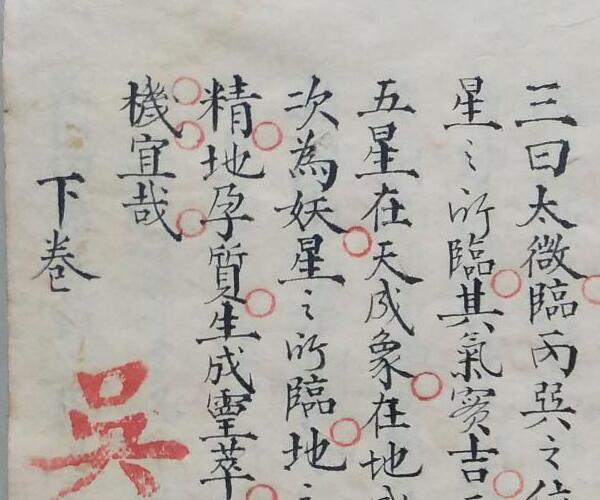 三曰太微臨丙巽之
星之所臨其氣實吉
五星在天成象在地
次為妖星之所臨地
精地孕質生成靈萃
機宜哉
下卷
吳